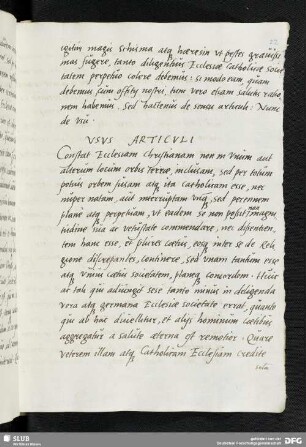 igitur magis schisma atq haeresin vt pestes grauissi
mas fugere, tanto diligentius Ecclesiae Catholicae socie
tatem perpetuo colere debemus: si modo eam quam
debemus, cum officij nostri, tum vero etiam salutis ratio
nem habemus. Sed hactenus de sensu articuli: Nunc
de vsu.
VSVS ARTICVLI
Constat Ecclesiam Christianam non in vnum aut
alterum locum orbis terrae inclusam, sed per totum
potius orbem fusam atq ita catholicam esse, nec
nuper natam, aut interruptam vnq, sed perennem
plane atq perpetuam, vt eadem se non possit magni
tudine sua ac vetustate commendare, nec disputem,
tem hanc esse, et plures coetus, eosq inter se de Reli
gione discrepantes, continere, sed vnam tantum esse
atq vnius coetus societatem, planeq concordem. Hinc
at tali qui adiungit sese tanto minus in deligenda
vera atq germana Ecclesiae societate errat, quanto
qui ab hac diuellitur, et alijs hominum coetibus
aggregatur a salute aeterna est remotior. Quare
veterem illam atq Catholicam Ecclesiam credite
SLUB
DFG